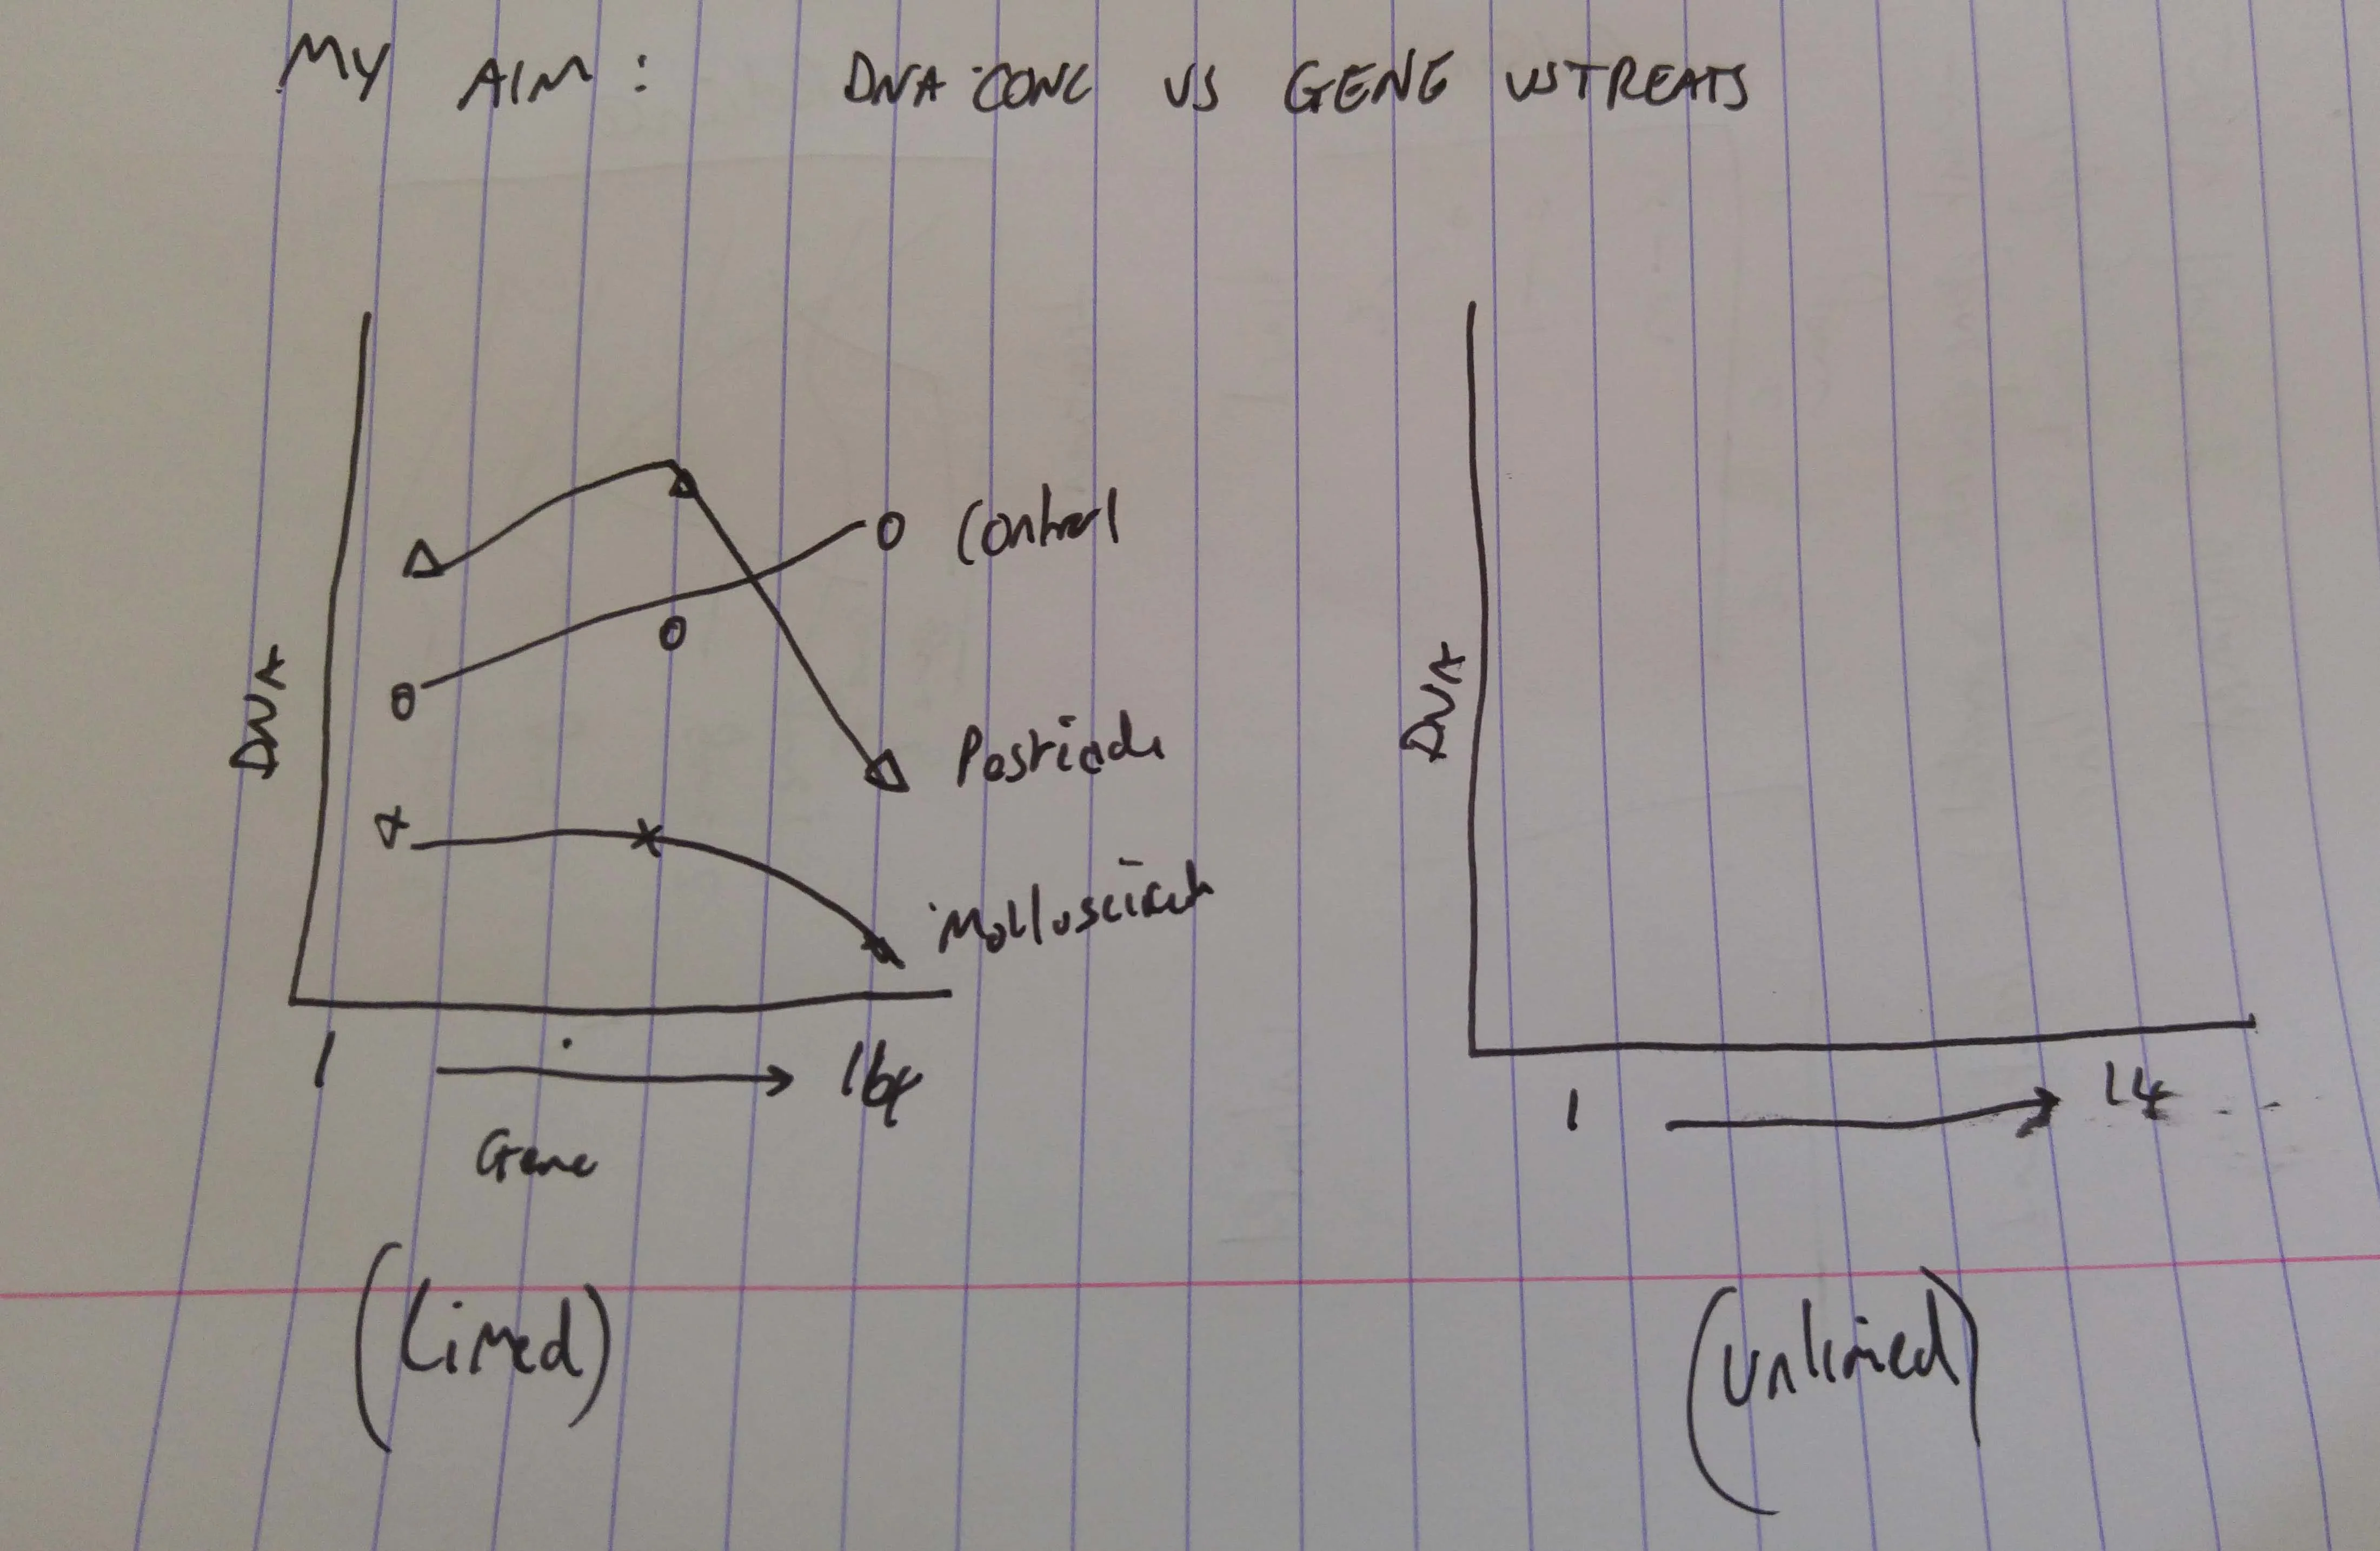 MY AIM: DNA CONC VS GENE VS TREATS
Control
DNA
Pesticide
Molluscicide
1
Gene
(Limed)
DNA
1 14
(Unlimed)